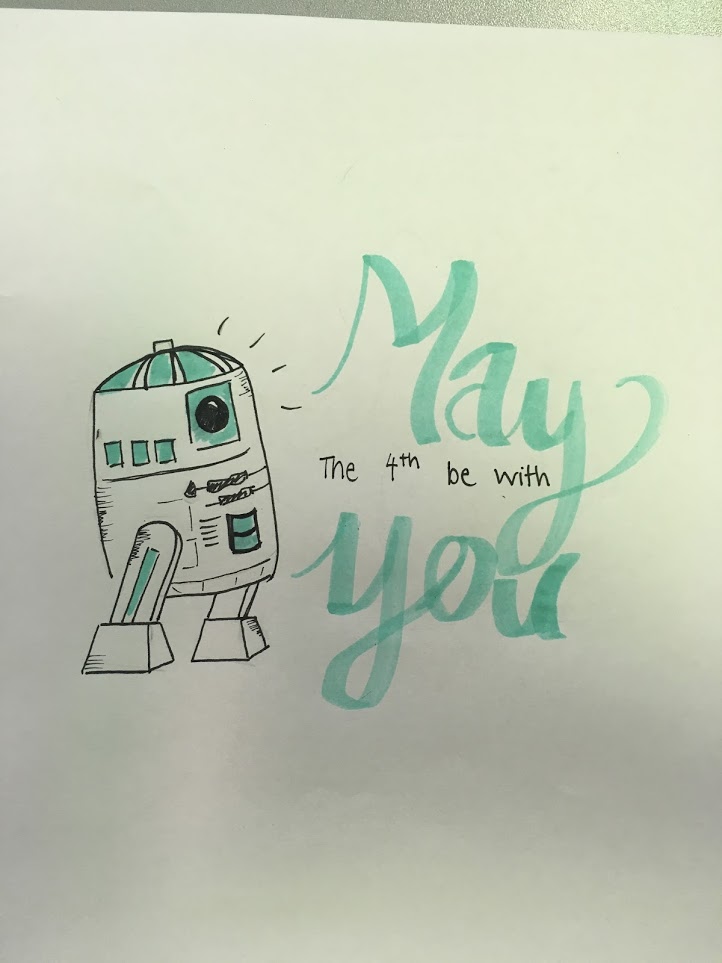 May
The 4th be with
you